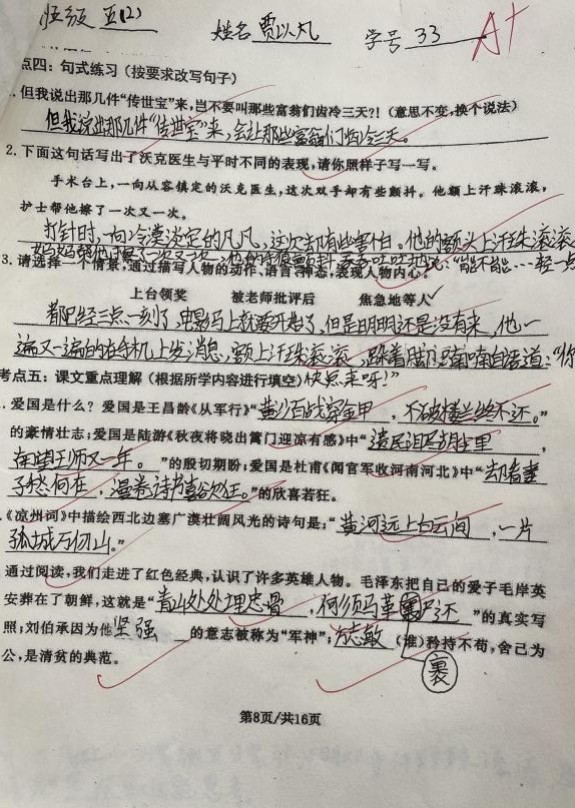 班级 五(2) 姓名 贾以凡 学号 33 A+
点四：句式练习（按要求改写句子）
.但我说出那几件“传世宝”来，岂不要叫那些富翁们齿冷三天？！（意思不变，换个说法）
但我说出那几件“传世宝”来，会让那些富翁们齿冷三天。
2.下面这句话写出了沃克医生与平时不同的表现，请你照样子写一写。
手术台上，一向从容镇定的沃克医生，这次双手却有些颤抖。他额上汗珠滚滚，
护士帮他擦了一次又一次。
打针时，一向冷漠淡定的凡凡，这次却有些害怕。他的额头上汗珠滚滚
妈妈帮他擦了一次又一次，他的 颤抖 吞吞吐吐地说：“能不能……轻一点
3.请选择一个情景，通过描写人物的动作、语言、神态，表现人物内心。
上台领奖 被老师批评后 焦急地等人✓
都已经三点一刻了，电影马上就要开始了，但是明明还是没有来，他一
遍又一遍的在手机上发消息，额上汗珠滚滚，跺着脚喃喃自语道：“你
快点来呀！”
考点五：课文重点理解（根据所学内容进行填空）
.爱国是什么？爱国是王昌龄《从军行》“黄沙百战穿金甲，不破楼兰终不还。”
的豪情壮志；爱国是陆游《秋夜将晓出篱门迎凉有感》中“遗民泪尽胡尘里，
南望王师又一年。”的殷切期盼；爱国是杜甫《闻官军收河南河北》中“却看妻
子愁何在，漫卷诗书喜欲狂。”的欣喜若狂。
.《凉州词》中描绘西北边塞广漠壮阔风光的诗句是：“黄河远上白云间，一片
孤城万仞山。”
通过阅读，我们走进了红色经典，认识了许多英雄人物。毛泽东把自己的爱子毛岸英
安葬在了朝鲜，这就是“青山处处埋忠骨，何须马革裹尸还”的真实写
照；刘伯承因为他坚强的意志被称为“军神”；方志敏（谁）矜持不苟，舍己为
公，是清贫的典范。
裹
第8页/共16页